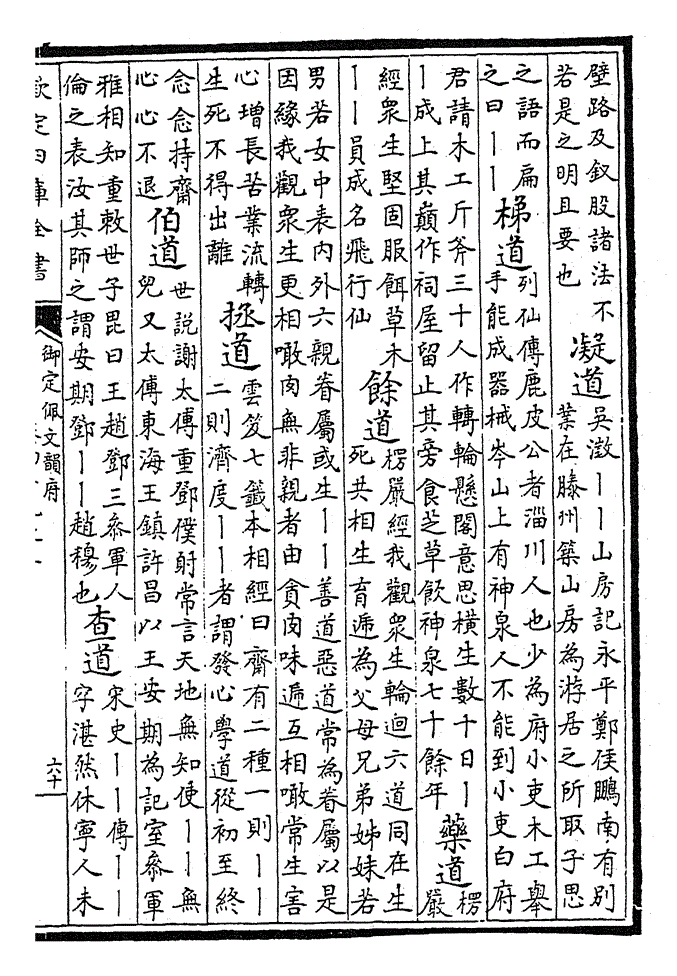 壁路及釵股諸法不
若是之明且要也
凝道
吳澂丨丨山房記永平鄭侄鵬南有別
業在滕州築山房為游居之所取子思
之語而扁
之曰丨丨
梯道
列仙傳鹿皮公者淄川人也少為府小吏木工舉
手能成器械岑山上有神泉人不能到小吏白府
君請木工斤斧三十人作轉輪懸閣意思橫生數十日丨
丨成上其巔作祠屋留止其旁食芝草飲神泉七十餘年
藥道
楞
嚴
經衆生堅固服餌草木
丨丨員成名飛行仙
餘道
楞嚴經我觀衆生輪迴六道同在生
死共相生育遞為父母兄弟姊妹若
男若女中表内外六親眷屬或生丨丨善道惡道常為眷屬以是
因緣我觀衆生更相噉肉無非親者由貪肉味遍互相噉常生害
心增長苦業流轉
生死不得出離
拯道
雲笈七籤本相經曰齋有二種一則丨丨
二則濟度丨丨者謂發心學道從初至終
念念持齋
心心不退
伯道
世說謝太傅重鄧僕射常言天地無知使丨丨無
兒又太傅東海王鎮許昌以王安期為記室參軍
雅相知重敕世子毘曰王趙鄧三參軍人
倫之表汝其師之謂安期鄧丨丨趙穆也
查道
宋史丨丨傳丨丨
字湛然休寧人未
欽定四庫全書
御定佩文韻府
六十